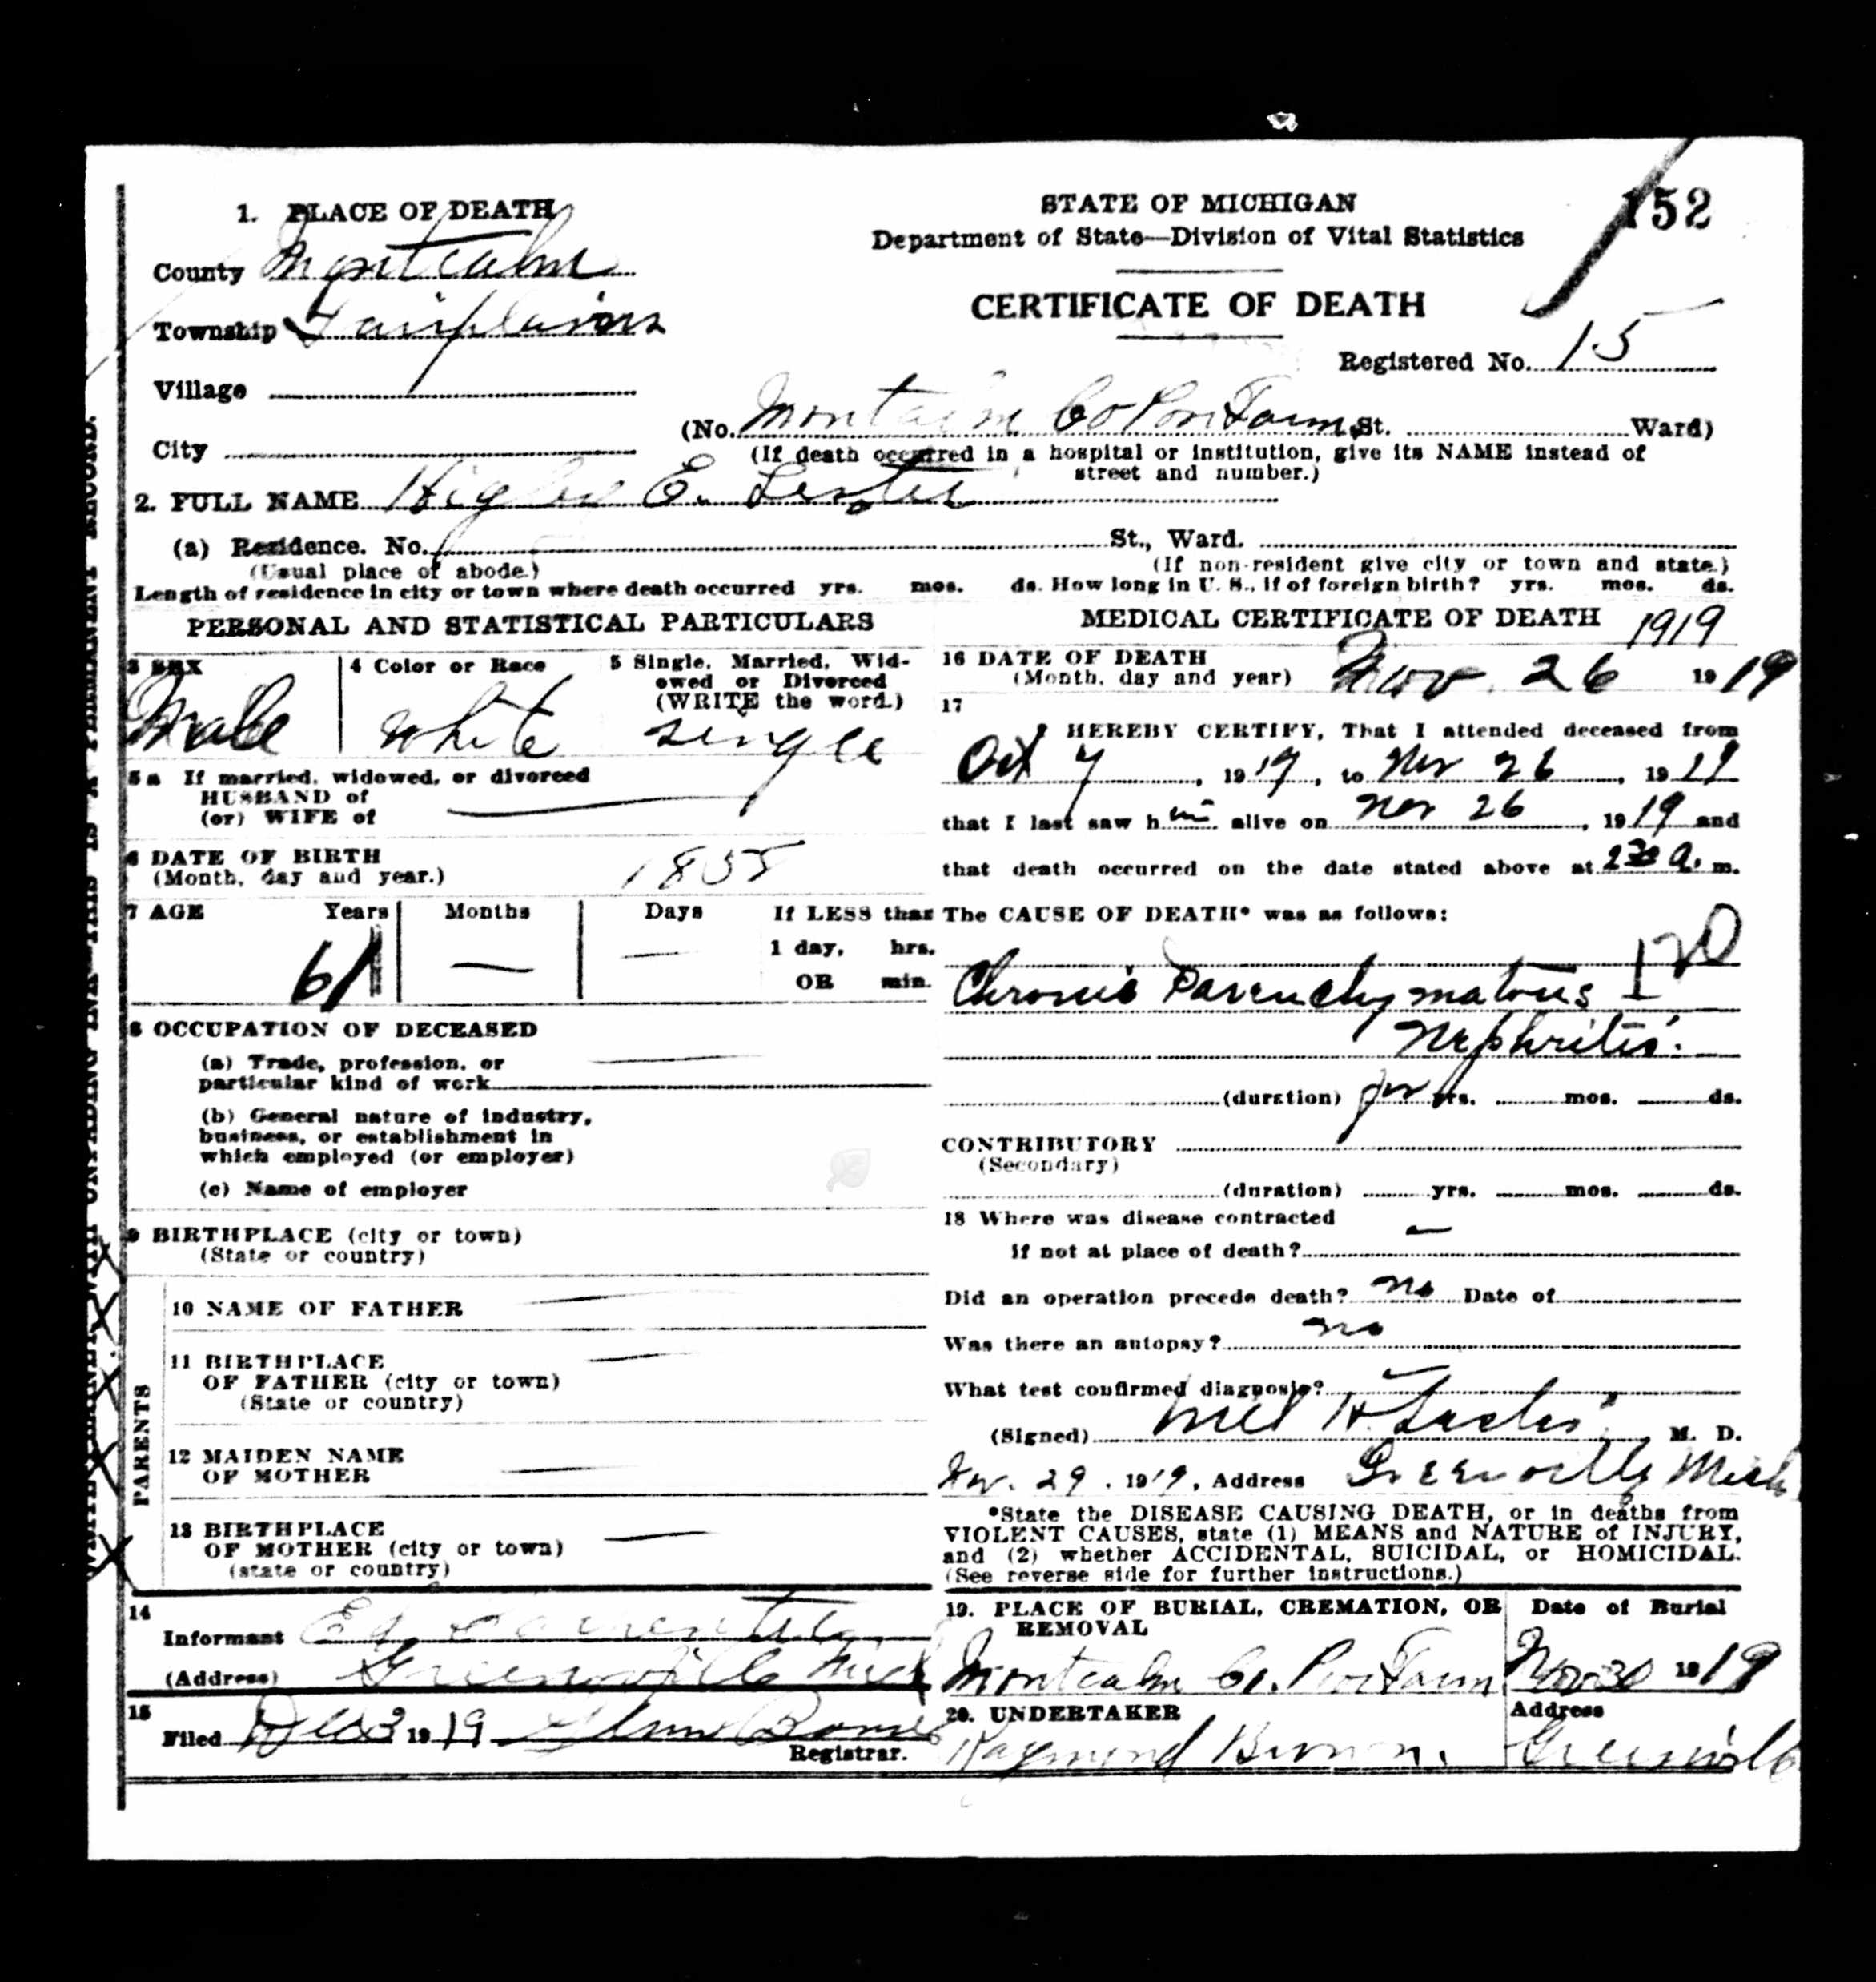 152
1. PLACE OF DEATH
STATE OF MICHIGAN
Department of State—Division of Vital Statistics
County Montcalm
CERTIFICATE OF DEATH
Township Fairplains
Registered No. 15
Village
(No. Montcalm Co Poor Farm St. Ward)
City
(If death occurred in a hospital or institution, give its NAME instead of
street and number.)
2. FULL NAME E. Lester
(a) Residence. No. St., Ward.
(Usual place of abode.)
(If non-resident give city or town and state.)
Length of residence in city or town where death occurred yrs. mos. ds. How long in U. S., if of foreign birth? yrs. mos. ds.
PERSONAL AND STATISTICAL PARTICULARS
3 SEX
Male
4 Color or Race
white
5 Single, Married, Wid-
owed or Divorced
(WRITE the word.)
single
5a If married, widowed, or divorced
HUSBAND of
(or) WIFE of
6 DATE OF BIRTH
(Month, day and year.)
1858
7 AGE Years Months Days If LESS than
1 day, hrs.
OR min.
61 — —
8 OCCUPATION OF DECEASED
(a) Trade, profession, or
particular kind of work
(b) General nature of industry,
business, or establishment in
which employed (or employer)
(c) Name of employer
9 BIRTHPLACE (city or town)
(State or country)
PARENTS
10 NAME OF FATHER —
11 BIRTHPLACE —
OF FATHER (city or town)
(State or country)
12 MAIDEN NAME
OF MOTHER —
13 BIRTHPLACE —
OF MOTHER (city or town)
(state or country)
14
Informant Ed
(Address) Greenville Mich
15
Filed Dec 3 1919
Registrar.
MEDICAL CERTIFICATE OF DEATH 1919
16 DATE OF DEATH
(Month, day and year) Nov. 26 1919
17
I HEREBY CERTIFY, That I attended deceased from
Oct 7, 1919, to Nov 26, 1919
that I last saw h im alive on Nov 26, 1919 and
that death occurred on the date stated above at 2 30 a. m.
The CAUSE OF DEATH* was as follows:
120
Chronic Parenchymatous
Nephritis.
(duration) yrs. mos. ds.
CONTRIBUTORY
(Secondary)
(duration) yrs. mos. ds.
18 Where was disease contracted
if not at place of death? —
Did an operation precede death? no Date of
Was there an autopsy? no
What test confirmed diagnosis? —
(Signed) M. D.
Nov. 29, 1919, Address Greenville Mich
*State the DISEASE CAUSING DEATH, or in deaths from
VIOLENT CAUSES, state (1) MEANS and NATURE of INJURY,
and (2) whether ACCIDENTAL, SUICIDAL, or HOMICIDAL.
(See reverse side for further instructions.)
19. PLACE OF BURIAL, CREMATION, OR
REMOVAL
Montcalm Co. Poor Farm
Date of Burial
Nov 30 1919
20. UNDERTAKER
Raymond Brown.
Address
Greenville